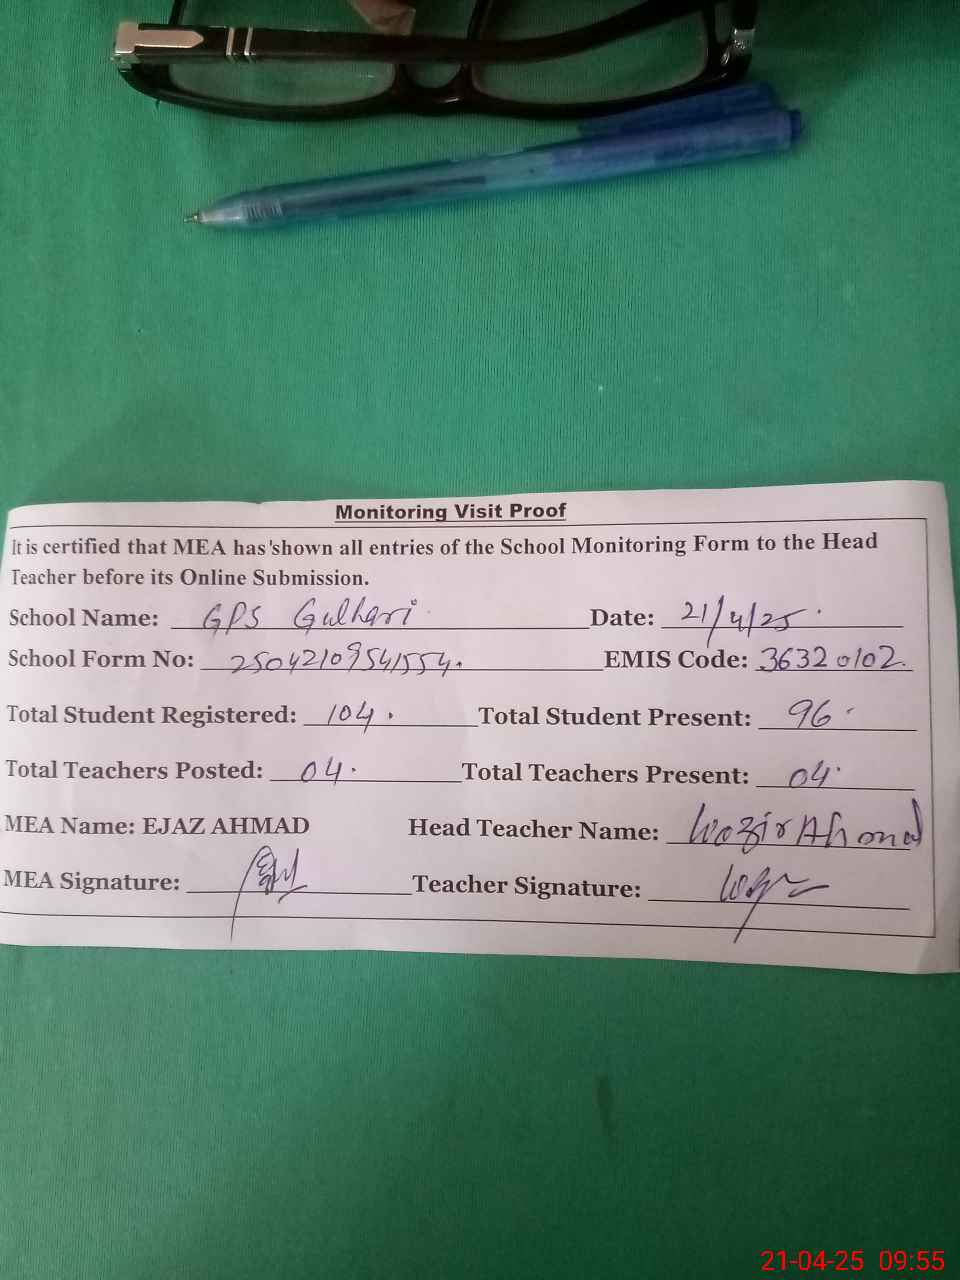 Monitoring Visit Proof
It is certified that MEA has shown all entries of the School Monitoring Form to the Head
Teacher before its Online Submission.
School Name: GPS Gulhari Date: 21/4/25
School Form No: 25042109541554. EMIS Code: 36320102.
Total Student Registered: 104. Total Student Present: 96
Total Teachers Posted: 04. Total Teachers Present: 04
MEA Name: EJAZ AHMAD Head Teacher Name: Wazir Ahmad
MEA Signature: Teacher Signature:
21-04-25 09:55